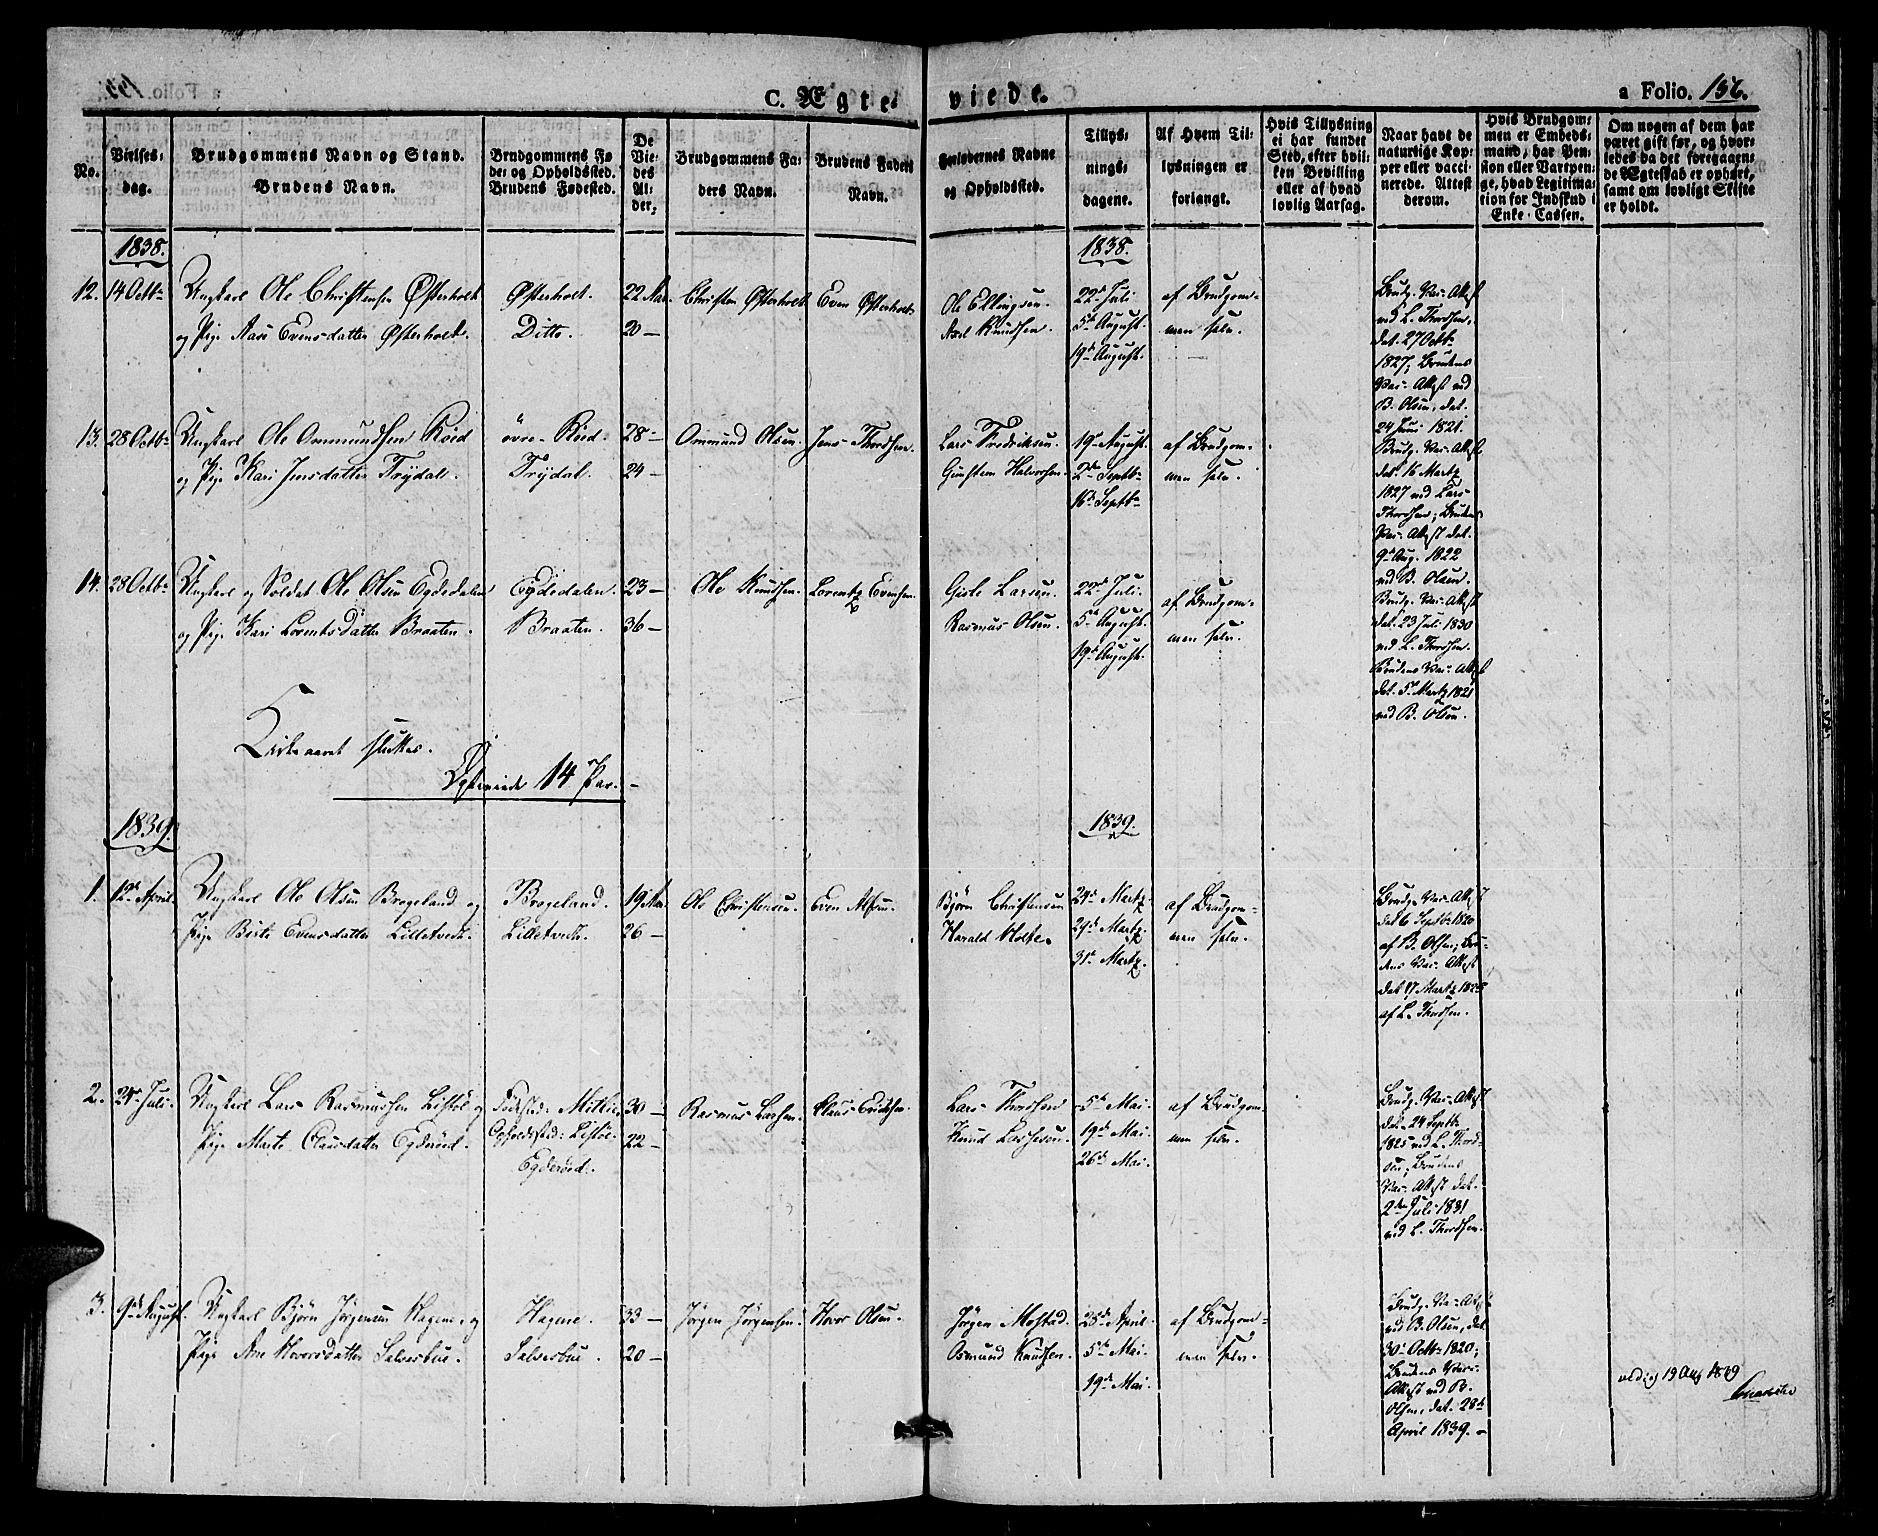 C. Ægte-
viede.
a Folio. 156.
No.
Vielses-
dag.
Brudgommens Navn og Stand.
Brudens Navn.
Brudgommens Fø-
de- og Opholdssted.
Brudens Fødested.
De
Vie-
des
Al-
der.
Brudgommens Fa-
ders Navn.
Brudens Faders
Navn.
Forlovernes Navne
og Opholdssted.
Tillys-
nings-
dagene.
Af Hvem Til-
lysningen er
forlangt.
Hvis Tillysning
ei har fundet
Sted, efter hvil-
ken Bevilling
eller af hvad
lovlig Aarsag.
Naar havt de
naturlige Kop-
per eller vacci-
nerede. Attest
derom.
Hvis Brudgom-
men er Embeds-
mand, har Pen-
sion eller Vartpen-
ge, hvad Legitima-
tion for Indskud i
Enke-Cassen.
Om nogen af dem har
været gift før, og hvor-
ledes da det foregaaen-
de Ægteskab er ophørt,
samt om lovligt Skifte
er holdt.
1838.
1838.
12.
14 Octbr
Ungkarl Ole Christensen Østerholt
og Pige Aase Evensdatter Østerholt.
Østerholt.
Ditto.
22 Aar.
20 —
Christen Østerholt
Even Østerholt
Ole Ellingsen.
Axel Knudsen.
22de Juli
5te August.
19de August.
af Brudgom-
men selv.
Brudg. Vac. Attest
ved L. Thordsen,
dat. 27 Octbr
1827; Brudens
Vac. Attest ved
B. Olsen, dat.
24 Juni 1821.
13.
28 Octbr
Ungkarl Ole Ommundsen Röed
og Pige Kari Jensdatter Trydal.
övre Röed.
Trydal.
28 —
24 —
Ommund Olsen.
Jens Thordsen.
Lars Fredriksen.
Gunsten Halvorsen.
19de August.
2den Septbr
16de Septbr
af Brudgom-
men selv.
Brudg. Vac. Attest
dat. 16 Martz
1827 ved Lars
Thordsen; Brudens
Vac. Attest dat.
9de Aug. 1822
ved B. Olsen.
14.
28 Octbr
Ungkarl og Soldat Ole Olsen Egdedalen
og Pige Kari Lorentsdatter Braaten.
Egdedalen.
Braaten.
23 —
36 —
Ole Knudsen.
Lorentz Evensen.
Gisle Larsen.
Rasmus Olsen.
22de Juli.
5te August.
19de August.
af Brudgom-
men selv.
Brudg. Vac. Attest
dat. 23 Juli 1830
ved L. Thordsen.
Brudens Vac. Attest
dat. 5te Martz 1821
ved B. Olsen.
Kirkeaaret sluttes.
Ægteviede 14 Par.
1839.
1839.
1.
12te April.
Ungkarl Ole Olsen Brogeland og
Pige Berte Evensdatter Lilletvedt.
Brogeland.
Lilletvedt.
19 Aar.
26 —
Ole Christensen.
Even Alfsen.
Björn Christensen
Harald Holte.
24de Martz.
29de Martz.
31te Martz.
af Brudgom-
men selv.
Brudg. Vac. Attest
dat. 6 Septbr 1820
af B. Olsen; Bru-
dens Vac. Attest
dat. 17 Martz 1825
af L. Thordsen.
2.
Juli.
Ungkarl Lars Rasmussen Listöl og
Pige Marte Clausdatter Egderöed.
Födested:
Opholdssted: Listöl.
Egderöed.
30 —
22 —
Rasmus Larsen.
Claus Eriksen.
Lars Thordsen
Knud
5te Mai.
19de Mai.
26de Mai.
af Brudgom-
men selv.
Brudg. Vac. Attest
dat. 24 Septbr
1825 ved L. Thord-
sen; Brudens
Vac. Attest dat.
2den Juli 1831
ved L. Thordsen.
3.
9de August.
Ungkarl Björn Jörgensen Hagene, og
Pige Ane Hovorsdatter Salvesbue.
Hagene.
Salvesbue.
33 —
20 —
Jörgen Jörgensen.
Hovor Olsen.
Jörgen Mostad.
Osmund Knudsen.
28de April.
5te Mai.
19de Mai.
af Brudgom-
men selv.
Brudg. Vac. Attest
ved B. Olsen, dat.
30te Octbr 1820;
Brudens Vac.
Attest ved B.
Olsen, dat. 28de
April 1839. –
19 Aug 1839